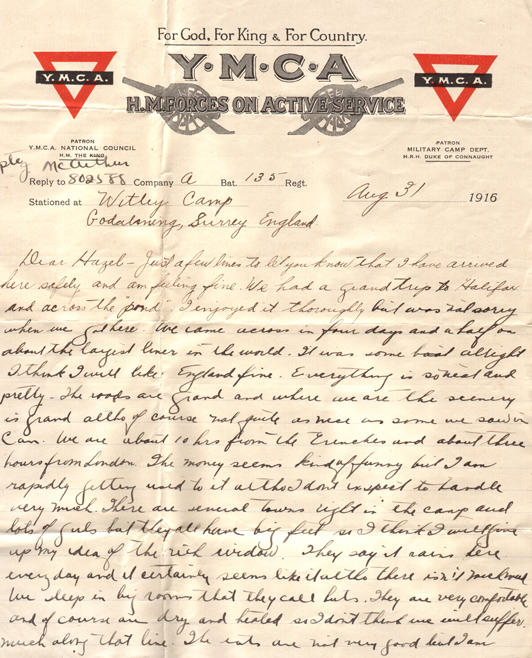 For God, For King & For Country.
Y·M·C·A
Y.M.C.A. Y.M.C.A.
H.M. FORCES ON ACTIVE SERVICE
PATRON
Y.M.C.A. NATIONAL COUNCIL
H.M. THE KING
PATRON
MILITARY CAMP DEPT.
H.R.H. DUKE OF CONNAUGHT
Pte McArthur
Reply to 802588 Company A Bat. 135 Regt.
Stationed at Witley Camp Aug 31 1916
Godalming, Surrey England
Dear Hazel – Just a few lines to let you know that I have arrived
here safely and am feeling fine. We had a grand trip to Halifax
and across the "pond". I enjoyed it thoroughly but was not sorry
when we got here. We came across in four days and a half on
about the largest liner in the world. It was some boat alright
I think I will like England fine. Everything is so neat and
pretty – The roads are grand and where we are the scenery
is grand altho of course not quite as nice as some we saw in
Can. We are about 10 hrs from the trenches and about three
hours from London. The money seems kind of funny but I am
rapidly getting used to it altho I don't expect to handle
very much. There are several towns right in the camp and
lots of girls but they all have big feet so I think I will give
up my idea of the rich widow. They say it rains here
every day and it certainly seems like it altho there isn't much mud
We sleep in big rooms that they call huts. They are very comfortable
and of course are dry and heated so I don't think we will suffer
much along that line. The eats are not very good but I am